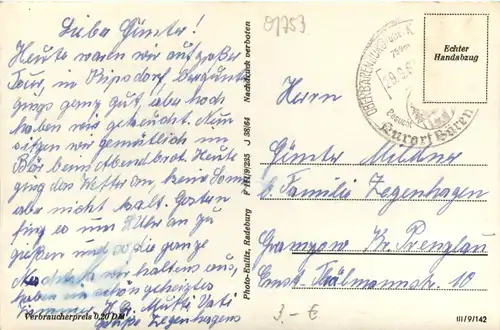 Liebe Günter!
Heute waren wir auf großer
Tour, in Ripsdorf, bergunter
gings ganz gut, aber hoch
haben wir gekeucht. Nun
sitzen wir gemütlich im
beim Abendbrot. Heute
ging das Wetter an, keine Sonne
aber nicht kalt. Gestern
fing es um Uhr an zu
gießen und so die ganze
Nacht. wir haltens aus,
haben ein schön geheiztes
Zimmer. H. Gr. Mutti Vati
Grüße Zegenhagens
Verbraucherpreis 0,20 DM
01753
Photo-Eulitz, Radeburg F III/9/235 J 38/64 Nachdruck verboten
Echter
Handabzug
Kurort Bären
Herrn
Günter Müttner
b. Familie Zegenhagen
Gramzow Kr. Prenzlau
Ernst-Thälmannstr. 10
3,- €
III/9/142